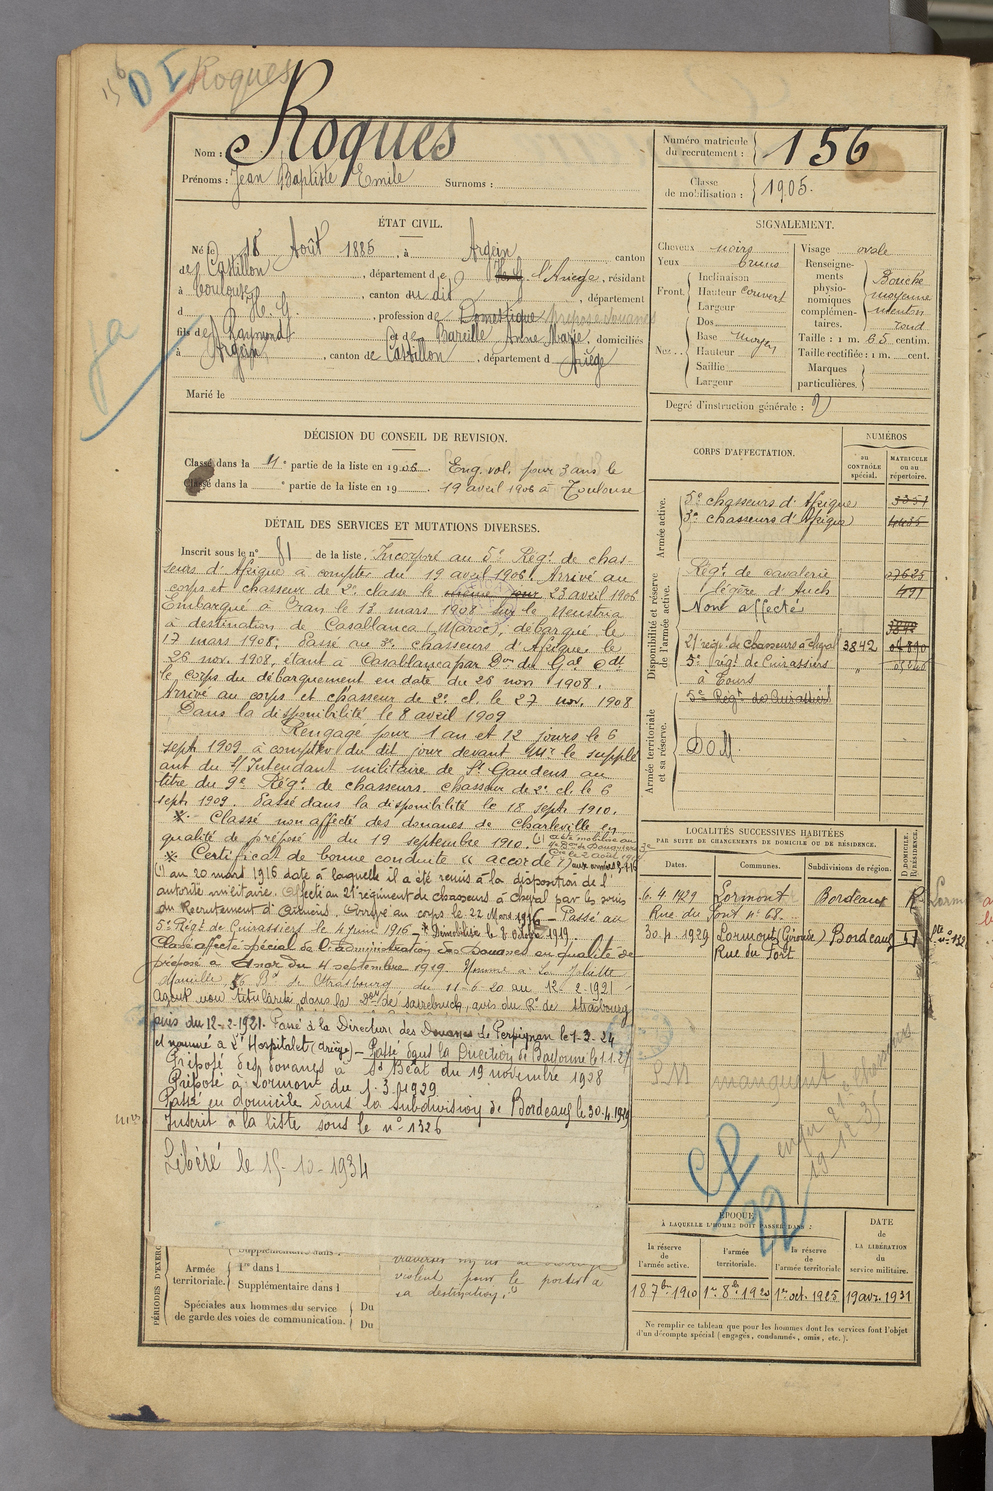 156
D I
Roques
Nom : Roques
Prénoms : Jean Baptiste Emile Surnoms :
Numéro matricule du recrutement : 156
Classe de mobilisation : 1905.
ÉTAT CIVIL.
Né le 18 Août 1885, à Argein canton
de Castillon, département de l'Ariège, résidant
à Toulouse, canton du dit, département
d H. G., profession de Domestique préposé douanes
fils de Raymond et de Bareille Anne Marie, domiciliés
à Argein, canton de Castillon, département d Ariège
Marié le
SIGNALEMENT.
Cheveux noirs
Yeux bruns
Front. Inclinaison
Hauteur couvert
Largeur
Nez.. Dos
Base moyen
Hauteur
Saillie
Largeur
Visage ovale
Renseignements physionomiques complémentaires. Bouche moyenne menton rond
Taille : 1 m. 65 centim.
Taille rectifiée : 1 m. cent.
Marques particulières.
Degré d'instruction générale : 2
DÉCISION DU CONSEIL DE REVISION.
Classé dans la 4e partie de la liste en 1906. Eng. vol. pour 3 ans le
Classé dans la e partie de la liste en 19 19 avril 1906 à Toulouse
DÉTAIL DES SERVICES ET MUTATIONS DIVERSES.
Inscrit sous le n° 81 de la liste. Incorporé au 5e Régt de chas-
seurs d'Afrique à compter du 19 avril 1906. Arrivé au
corps et chasseur de 2e classe le même jour 23 avril 1906
Embarqué à Oran le 13 mars 1908 sur le Meustria
à destination de Casablanca (Maroc), débarqué le
17 mars 1908. Passé au 3e chasseurs d'Afrique le
26 nov. 1908, étant à Casablanca par Don du Gal Cdt
le corps du débarquement en date du 26 nov 1908.
Arrivé au corps et chasseur de 2e cl. le 27 nov. 1908
Dans la disponibilité le 8 avril 1909
Rengagé pour 1 an et 12 jours le 6
sept 1909 à compter du dit jour devant Mr le suppLé
ant du S/Intendant militaire de St Gaudens au
titre du 9e Régt de chasseurs. Chasseur de 2e cl. le 6
sept. 1909. Passé dans la disponibilité le 18 sept. 1910.
*.- Classé non affecté des douanes de Charleville en
qualité de préposé du 19 septembre 1910.
* Certificat de bonne conduite "accordé"
(1) au 20 mars 1916 date à laquelle il a été remis à la disposition de l'
autorité militaire. Affecté au 21e régiment de chasseurs à cheval par les soins
du Recrutement d'Orléans. Arrivé au corps le 22 Mars 1916 - Passé au
5e Régt de Cuirassiers le 4 juin 1916 - * Démobilisé le 8 Octobre 1919.
Classé affecté spécial de l'administration des Douanes en qualité de
préposé à Anor du 4 septembre 1919. Nommé à La Joliette
Marseille, Bn de Strasbourg du 11-6-20 au 12-2-1921
Agent non titularisé dans la Don de Sarrebruck, avis du Rt de Strasbourg
puis du 12-2-1921. Passé à la Direction des Douanes de Perpignan le 1-3-24
et nommé à L'Hospitalet (Ariège) - Passé dans la Direction de Bayonne le 1.1.27
Préposé des douanes à St Béat du 19 novembre 1928
Préposé à Lormont du 1.3.1929
Passé en domicile dans la subdivision de Bordeaux le 30.4.1929
Inscrit à la liste sous le n° 1326
Libéré le 15-10-1934
CORPS D'AFFECTATION.
NUMÉROS
au CONTRÔLE spécial.
MATRICULE ou au répertoire.
Armée active.
5e chasseurs d'Afrique 3351
3e chasseurs d'Afrique 4435
Disponibilité et réserve de l'armée active.
Régt de cavalerie
légère d'Auch 491
Non affecté
21e régt de chasseurs à cheval 3842
5e régt de Cuirassiers
à Tours
Armée territoriale et sa réserve.
5e Régt de Cuirassiers
DOM.
LOCALITÉS SUCCESSIVES HABITÉES
PAR SUITE DE CHANGEMENTS DE DOMICILE OU DE RÉSIDENCE.
Dates. Communes. Subdivisions de région. D. DOMICILE. R. RÉSIDENCE.
6.4.1929 Lormont Bordeaux R
Rue du Port n° 68.
30.4.1929 Lormont (Gironde) Bordeaux D
Rue du Port
PM manquent
19-12-35
22
ÉPOQUE
À LAQUELLE L'HOMME DOIT PASSER DANS :
la réserve de l'armée active.
l'armée territoriale.
la réserve de l'armée territoriale
DATE de LA LIBÉRATION du service militaire.
18 7bre 1910 1er 8bre 1920 1er oct. 1925 19 avr. 1931
Ne remplir ce tableau que pour les hommes dont les services font l'objet
d'un décompte spécial (engagés, condamnés, omis, etc.).
PÉRIODES D'EXERC
Supplémentaire dans l
Armée territoriale.
1re dans l
Supplémentaire dans l
Spéciales aux hommes du service de garde des voies de communication.
Du
Du
violent pour le porter à
sa destination."